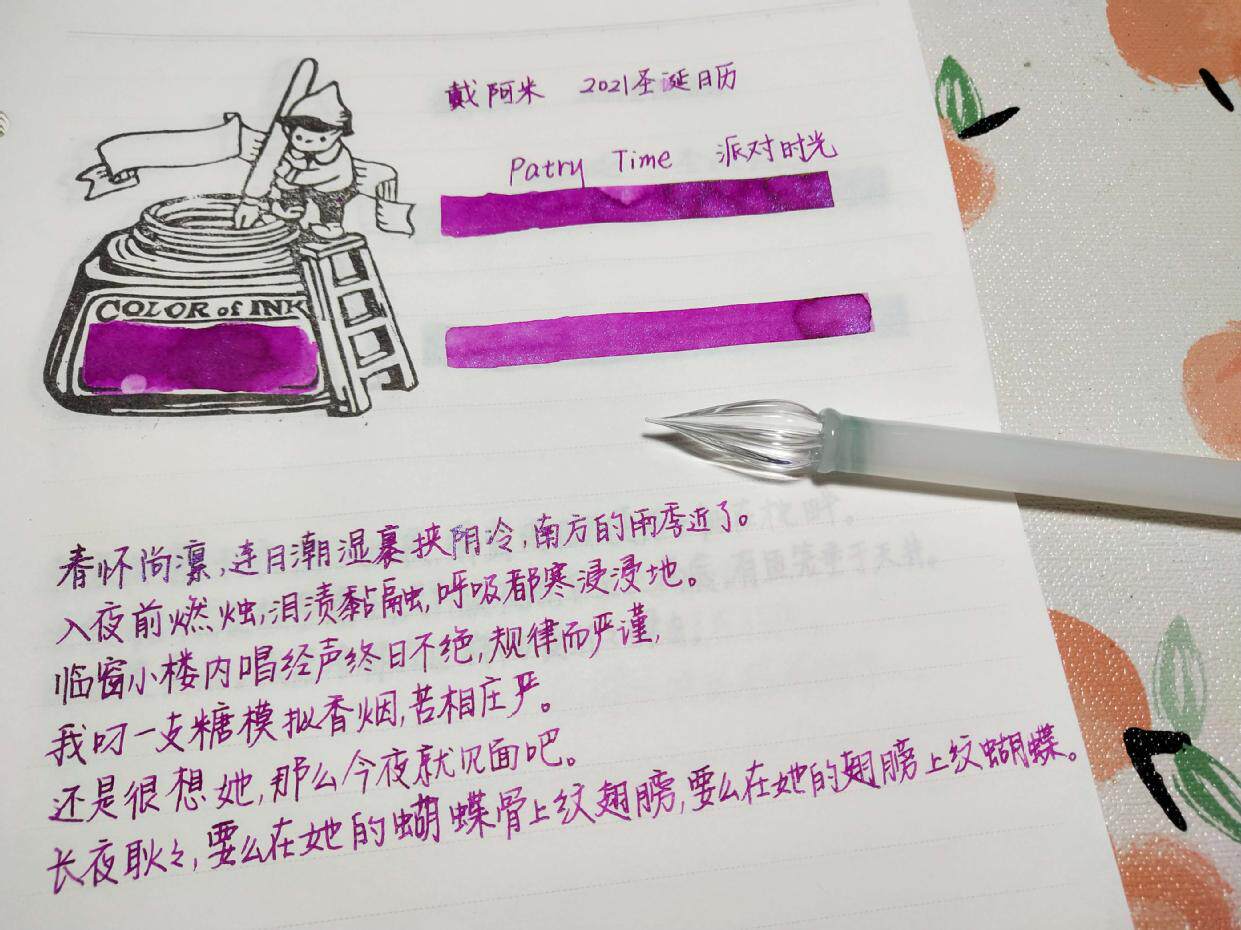 戴阿米 2021圣诞日历
Patry Time 派对时光
COLOR of INK
春怀尚凛,连日潮湿裹挟阴冷,南方的雨季近了。
入夜前燃烛,泪渍黏融,呼吸都寒浸浸地。
临窗小楼内唱经声终日不绝,规律而严谨,
我叼一支糖模拟香烟,苦相庄严。
还是很想她,那么今夜就见面吧。
长夜耿々,要么在她的蝴蝶骨上纹翅膀,要么在她的翅膀上纹蝴蝶。